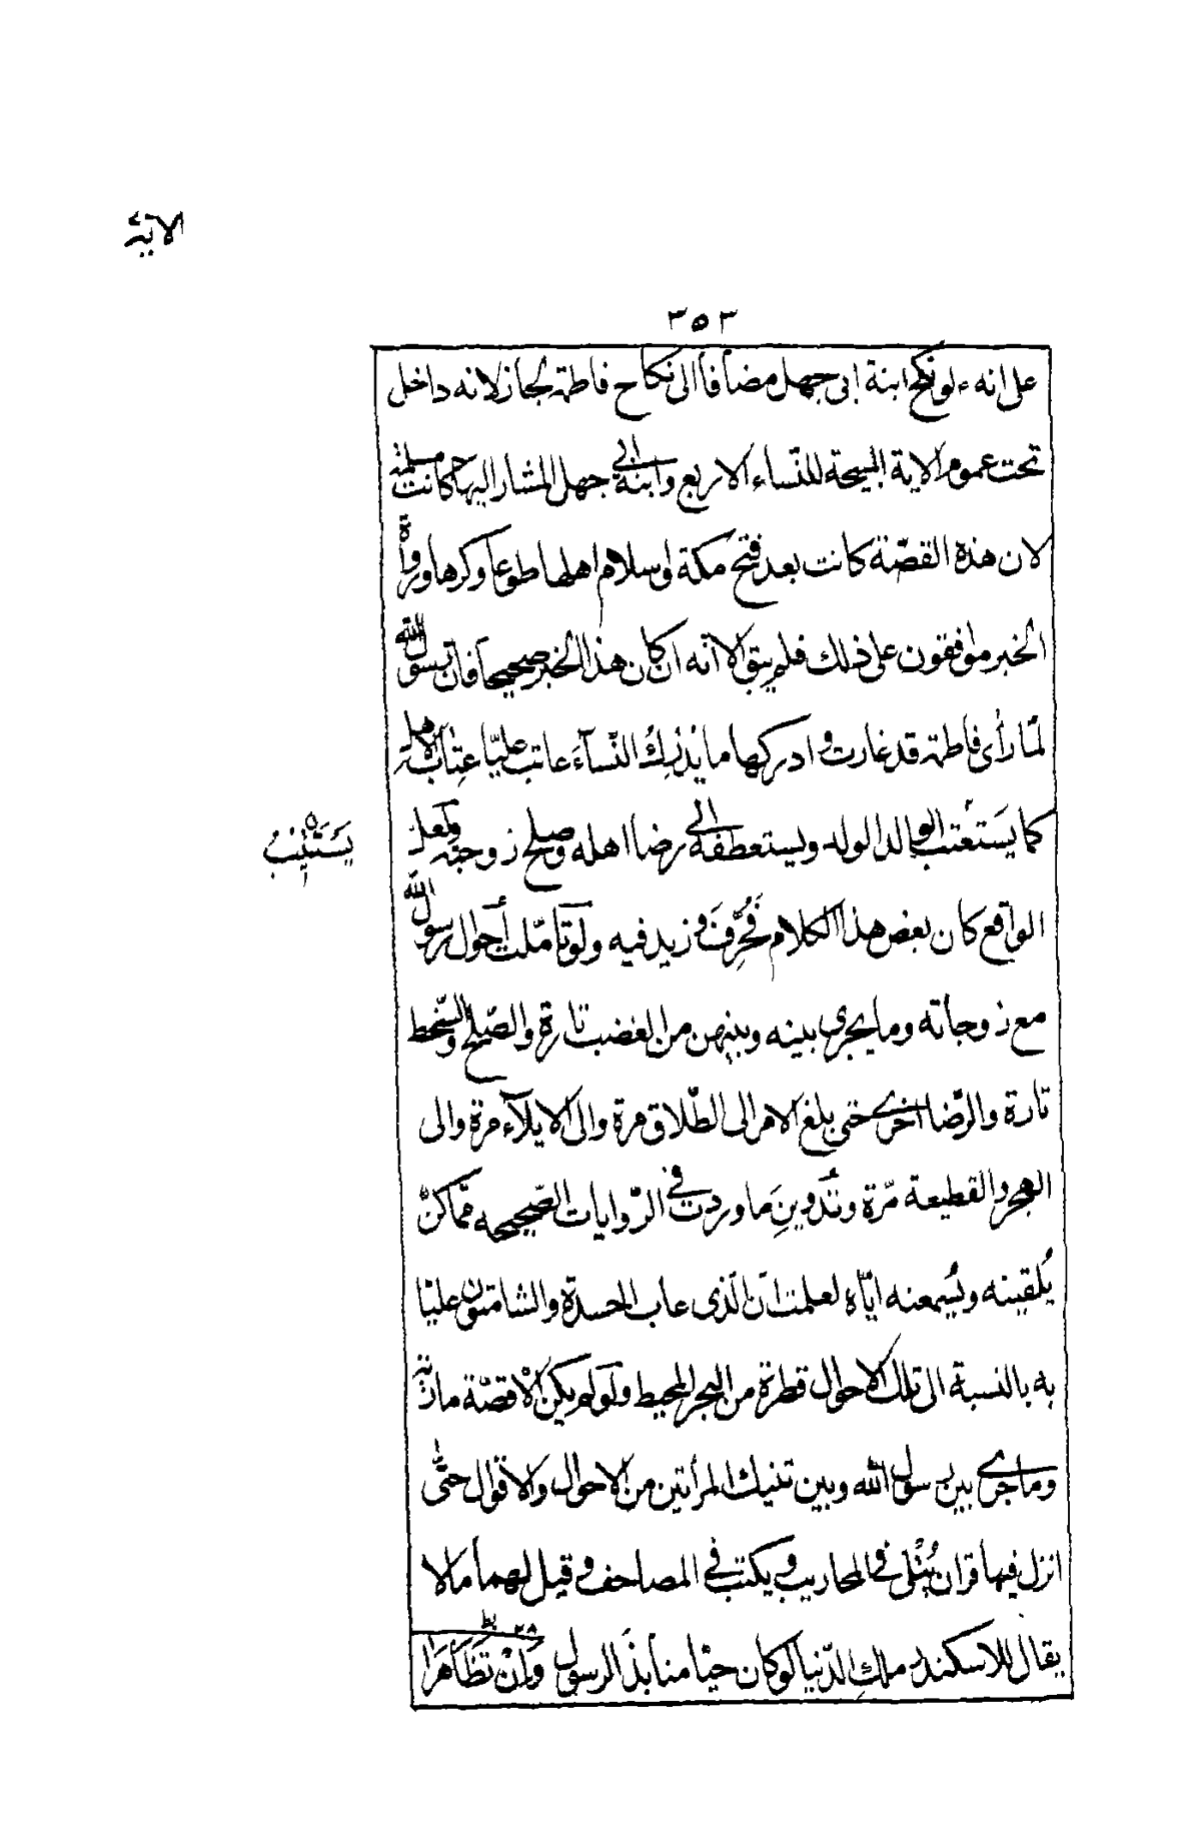 الآية
٣٥٣
على انه ء لو نكح ابنة ابى جهل مضافاً الى نكاح فاطمة لجاز لانه داخل
تحت عموم الاية المبيحة للنساء الاربع وابنة ابي جهل المشار اليها كانت مسلمة
لان هذه القصّة كانت بعد فتح مكة واسلام اهلها طوعاً وكرها ورواة
الخبر موافقون على ذلك فلم يبق الا انّه ان كان هذا الخبر صحيحاً فان رسول الله
لمّا رأى فاطمة قد غارت وادركها ما يُدرِكُ النّسآءَ عاتب عليّا عِتاب الاهل
كما يَستَعْتب الوالد الولد ويستعطفه الى رضا اهله وصلح زوجته ولعل
يَسْتَنِيْبُ
الواقع كان بعض هذا الكلام فَحُرِّفَ و زيد فيه ولو تامّلت أحوال رسول الله
مع زوجاته وما يجرى بينه وبينهن من الغضب تارة والصّلح والسّخط
تارة والرّضا اخرى حتى بلغ الامر الى الطّلاق مرة والى الايلآء مرة والى
الهجر والقطيعة مرّة وتدوين ما وردت في الرّوايات الصّحيحه ممّا كنّ
يُلقينه ويُسمعنه ايّاه لعلمت انّ الّذى عاب الحسدة والشامتون عليّا
به بالنسبة الى تلك الاحوال قطرة من البحر المحيط ولو لم يكن الا قصّة مارية
وما جرى بين رسول الله وبين تنيك المرأتين من الاحوال والاقوال حتّى
انزل فيها قران يُتْلى في المحاريب ويكتب في المصاحف وقيل لهما ما لا
يقال للاسكندر ملكِ الدّنيا لو كان حيّا منابذَ الرسول وَاِنْ تَظَاهَرَا